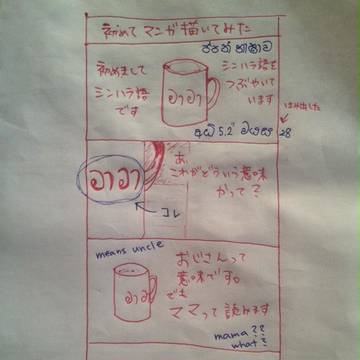 初めてマンガ描いてみた
初めまして
シンハラ語
です
อาอา
シンハラ語を
つぶやいて
います
はみ出した
5.2" වයස 28
อาอา
あ、
これがどういう意味
かって？
コレ
means uncle
おじさんって
意味です。
でも
ママって読めます
อาอา
mama??
what?